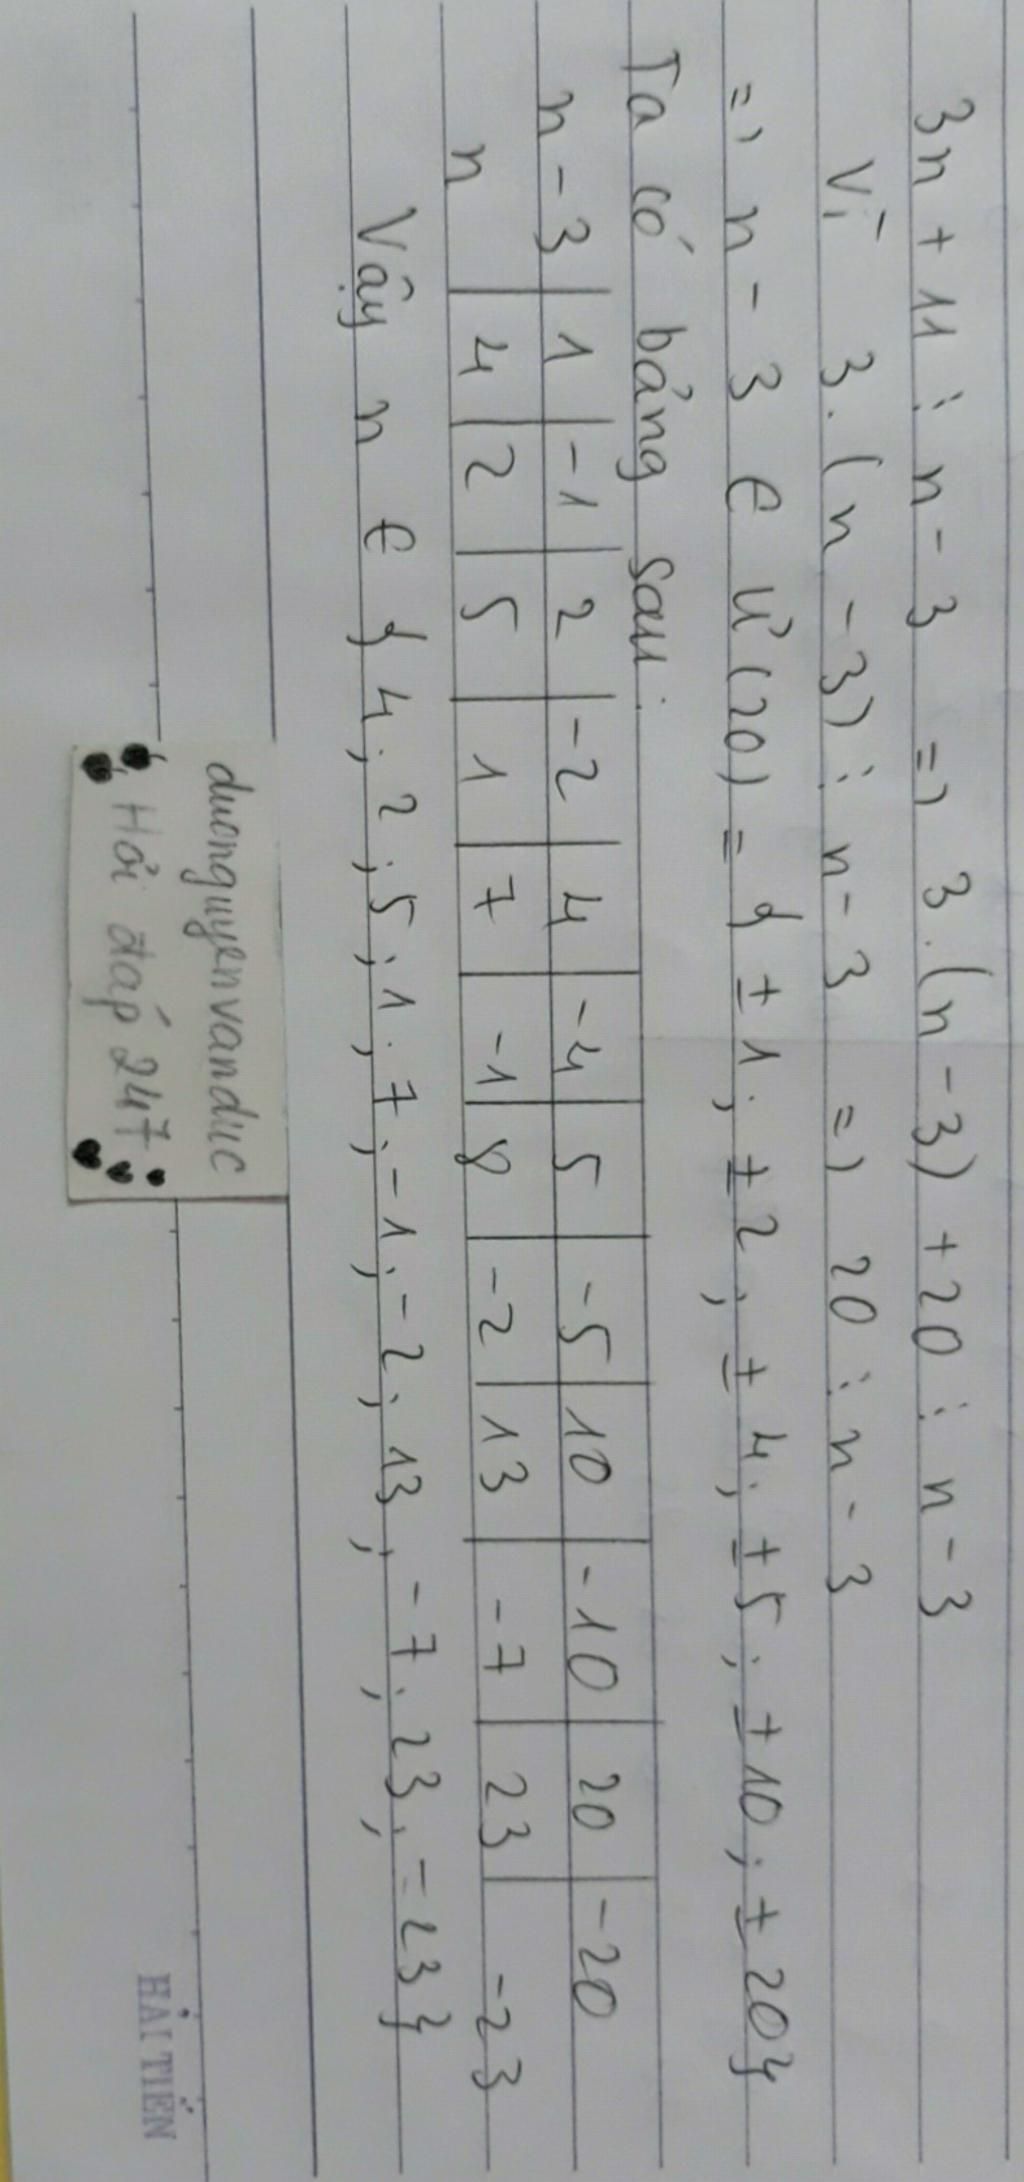 3n + 11 ⋮ n - 3 => 3.(n - 3) + 20 ⋮ n - 3
Vì 3.(n - 3) ⋮ n - 3 => 20 ⋮ n - 3
=> n - 3 ∈ Ư(20) = { ±1; ±2; ±4; ±5; ±10; ±20}
Ta có bảng sau:
n - 3 | 1 | -1 | 2 | -2 | 4 | -4 | 5 | -5 | 10 | -10 | 20 | -20
n | 4 | 2 | 5 | 1 | 7 | -1 | 8 | -2 | 13 | -7 | 23 | -23
Vậy n ∈ { 4; 2; 5; 1; 7; -1; -2; 13; -7; 23; -23}
duonguyenvanduc
Hỏi đáp 247
HẢI TIẾN